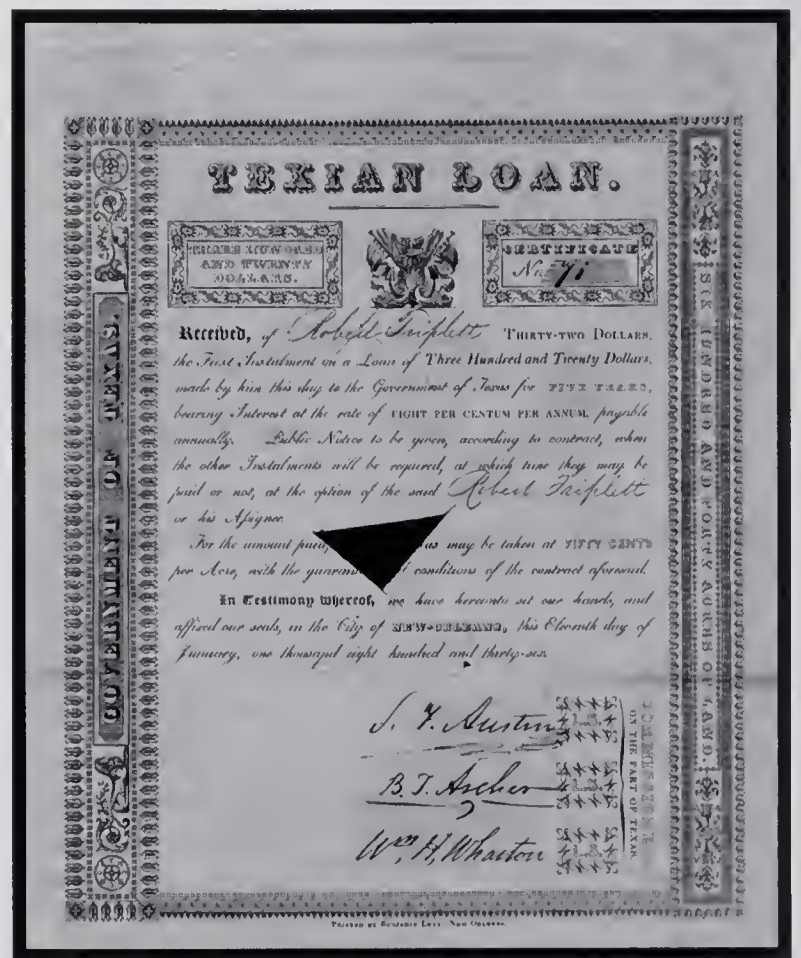 TEXIAN LOAN.
THREE HUNDRED
AND TWENTY
DOLLARS.
CERTIFICATE
No 71
Received, of Robert Triplett THIRTY-TWO DOLLARS,
the First Instalment on a Loan of Three Hundred and Twenty Dollars,
made by him this day to the Government of Texas for FIVE YEARS,
bearing Interest at the rate of EIGHT PER CENTUM PER ANNUM, payable
annually. Public Notice to be given, according to contract, when
the other Instalments will be required, at which time they may be
paid or not, at the option of the said Robert Triplett
or his Assignee.
For the amount paid, as may be taken at FIFTY CENTS
per Acre, with the conditions of the contract aforesaid.
In Testimony whereof, we have hereunto set our hands, and
affixed our seals, in the City of NEW-ORLEANS, this Eleventh day of
January, one thousand eight hundred and thirty-six.
S. F. Austin
B. T. Archer
Wm. H. Wharton
COMMISSIONERS
ON THE PART OF TEXAS.
GOVERNMENT OF TEXAS.
SIX HUNDRED AND FORTY ACRES OF LAND.
PRINTED BY BENJAMIN LEVY, NEW ORLEANS.